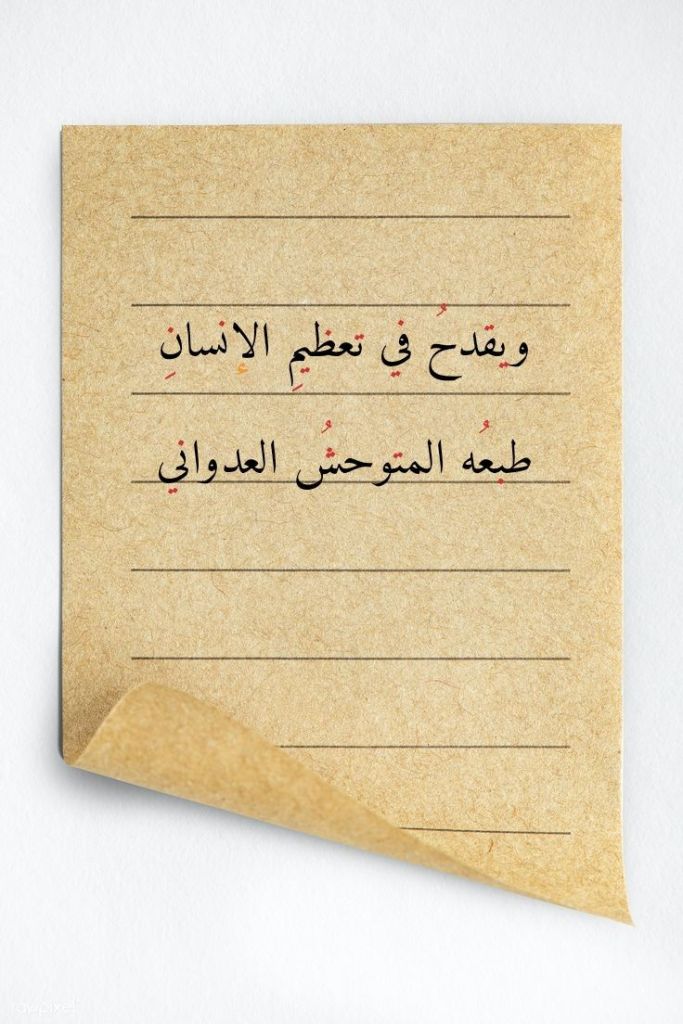 ويقدحُ في تعظيمِ الإنسانِ
طبعُه المتوحشُ العدواني
rawpixel